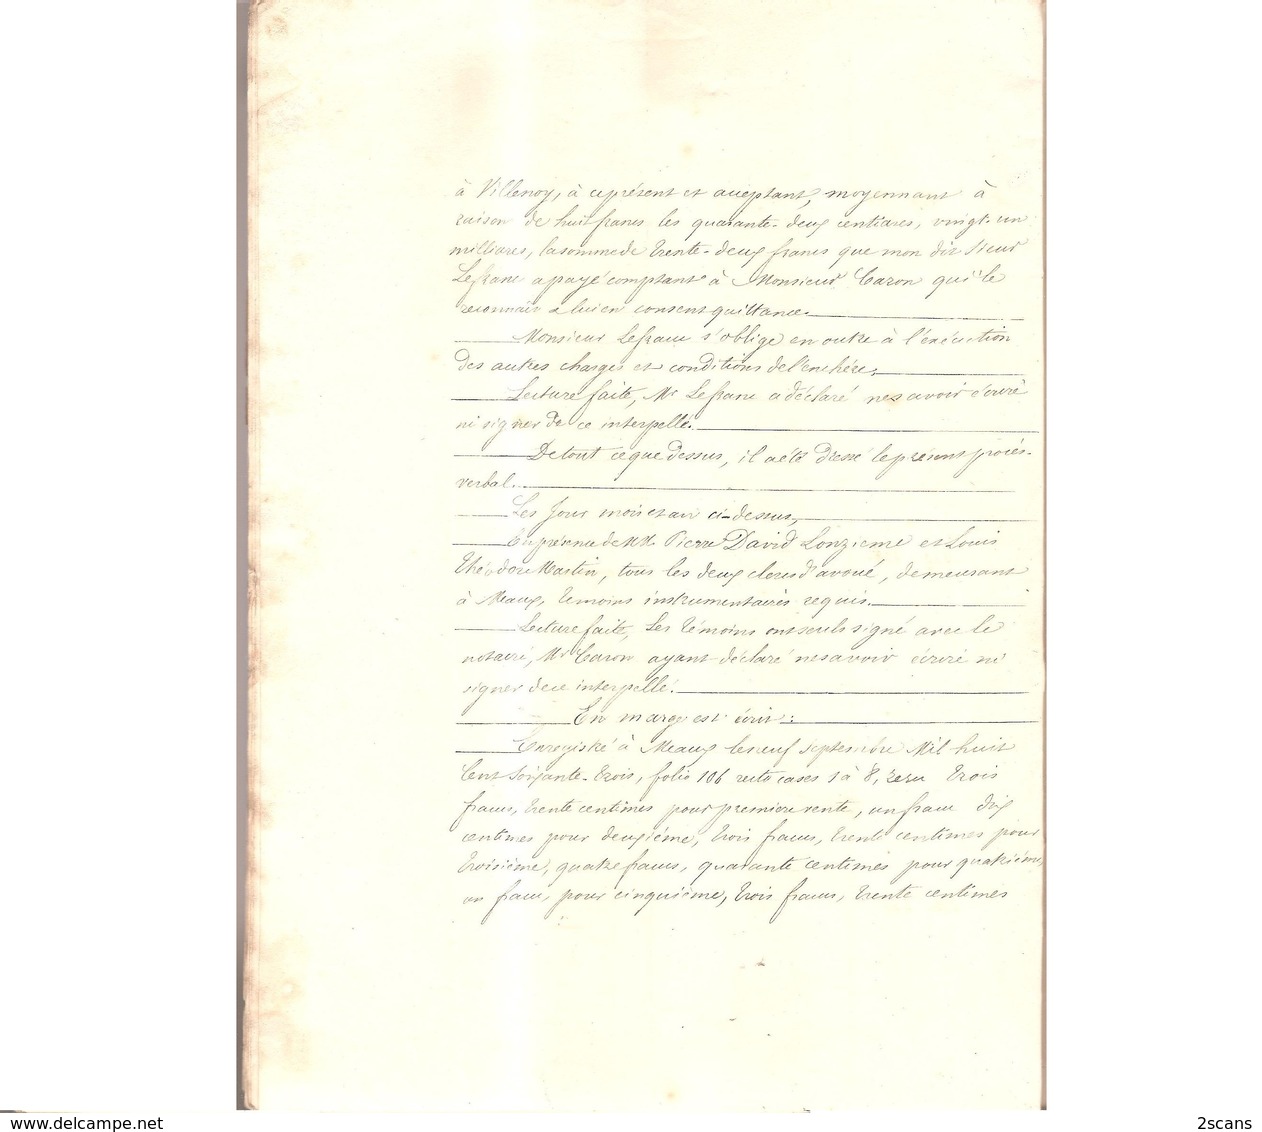 à Villenoy, à ce présent et acceptant, moyennant à
raison de huit francs les quarante-deux centiares, vingt-un
milliares, la somme de trente-deux francs que mon dit Sieur
Lefranc a payé comptant à Monsieur Caron qui le
reconnait & lui en consent quittance.
Monsieur Lefranc s'oblige en outre à l'exécution
des autres charges et conditions de l'enchère.
Lecture faite, Mr Lefranc a déclaré ne savoir écrire
ni signer de ce interpellé.
De tout ce que dessus, il a été dressé le présent procès-
verbal.
Les jour mois et an ci-dessus,
En présence de MM. Pierre David Lonzieme et Louis
Théodore Martin, tous les deux clercs d'avoué, demeurant
à Meaux, témoins instrumentaires requis.
Lecture faite, Les témoins ont seuls signé avec le
notaire, Mr Caron ayant déclaré ne savoir écrire ni
signer de ce interpellé.
En marge est écrit :
Enregistré à Meaux le neuf septembre Mil huit
Cent Soixante-trois, folio 106 recto cases 1 à 8, reçu trois
francs, trente centimes pour première vente, un franc dix
centimes pour deuxième, trois francs, trente centimes pour
troisième, quatre francs, quarante centimes pour quatrième,
un franc, pour cinquième, trois francs, trente centimes
2scans